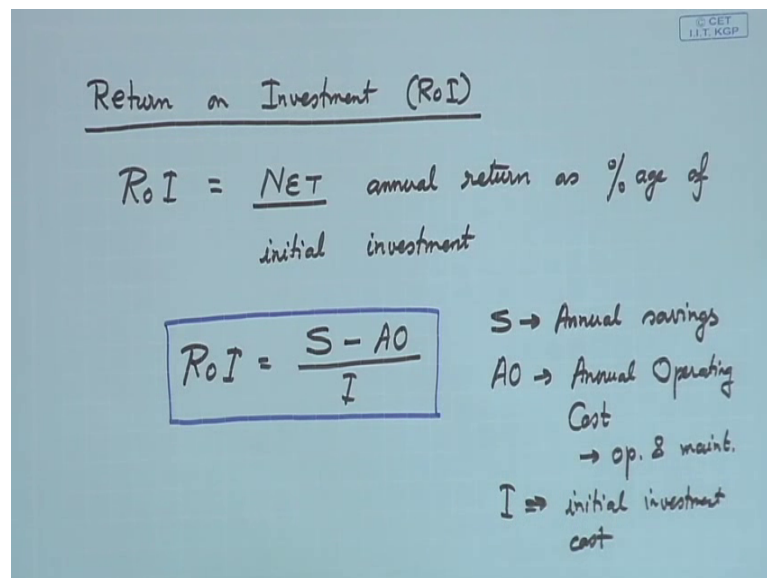 © CET
I.I.T. KGP
Return on Investment (RoI)
RoI = NET annual return as % age of
initial investment
RoI = S - AO / I
S → Annual savings
AO → Annual Operating
Cost
→ op. & maint.
I ⇒ initial investment
cost